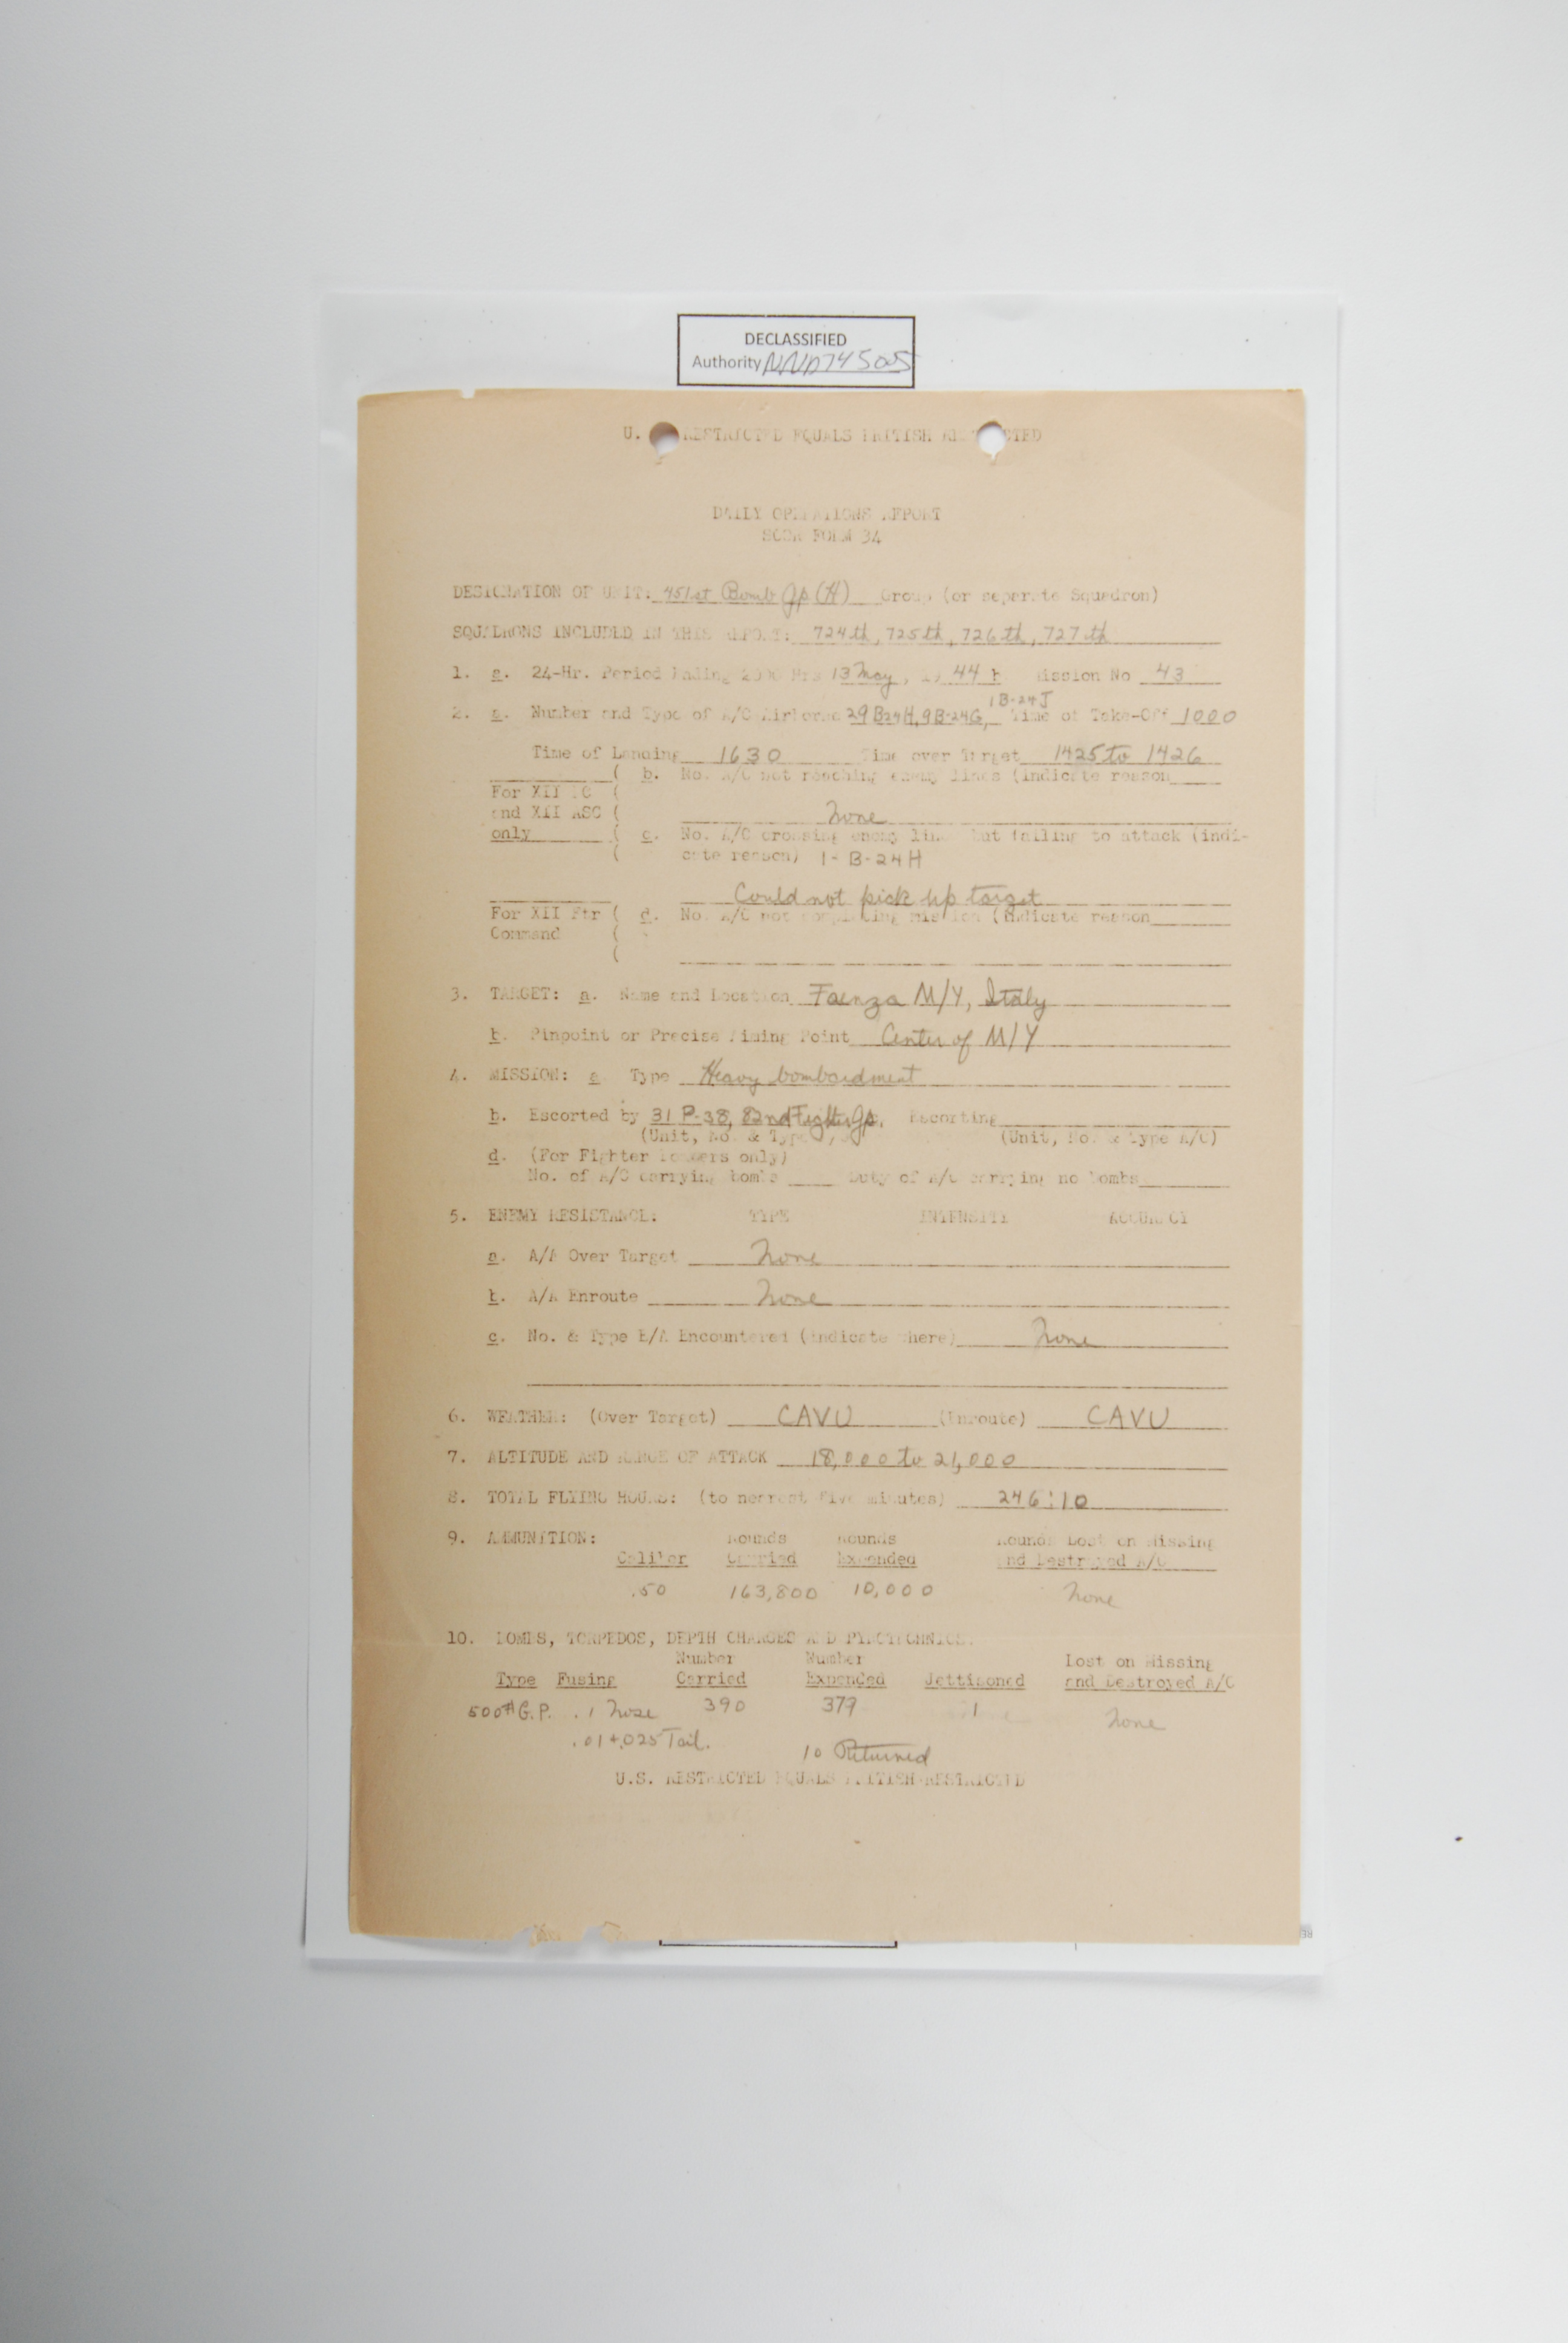 DECLASSIFIED
Authority NND745005
U. RESTRICTED EQUALS BRITISH RESTRICTED
DAILY OPERATIONS REPORT
SCOR FORM 34
DESIGNATION OF UNIT: 451st Bomb Gp (H) Group (or separate Squadron)
SQUADRONS INCLUDED IN THIS REPORT: 724th, 725th, 726th, 727th
1. a. 24-Hr. Period Ending 2000 Hrs 13 May, 19 44 b Mission No 43
1 B-24J
2. a. Number and Type of A/C Airborne 29 B24H, 9 B-24G, Time of Take-Off 1000
Time of Landing 1630 Time over Target 1425 to 1426
( b. No. A/C not reaching enemy lines (indicate reason
For XII BC (
and XII ASC ( None
only ( c. No. A/C crossing enemy line but failing to attack (indi-
( cate reason) 1- B-24H
Could not pick up target
For XII Ftr ( d. No. A/C not completing mission (indicate reason
Command (
(
3. TARGET: a. Name and Location Faenza M/Y, Italy
b. Pinpoint or Precise Aiming Point Center of M/Y
4. MISSION: a Type Heavy bombardment
b. Escorted by 31 P-38, 82nd Fighter Gp. Escorting
(Unit, No. & Type (Unit, No. & Type A/C)
d. (For Fighter Bombers only)
No. of A/C carrying bombs Duty of A/C carrying no bombs
5. ENEMY RESISTANCE: TYPE INTENSITY ACCURACY
a. A/A Over Target None
b. A/A Enroute None
c. No. & Type E/A Encountered (indicate where) None
6. WEATHER: (Over Target) CAVU (Enroute) CAVU
7. ALTITUDE AND RANGE OF ATTACK 18,000 to 21,000
8. TOTAL FLYING HOURS: (to nearest five minutes) 246:10
9. AMMUNITION: Rounds Rounds Rounds Lost on Missing
Caliber Carried Expended and Destroyed A/C
.50 163,800 10,000 None
10. BOMBS, TORPEDOS, DEPTH CHARGES AND PYROTECHNICS.
Number Number Lost on Missing
Type Fusing Carried Expended Jettisoned and Destroyed A/C
500# G.P. .1 Nose 390 379 1 None
.01+.025 Tail.
10 Returned
U.S. RESTRICTED EQUALS BRITISH RESTRICTED